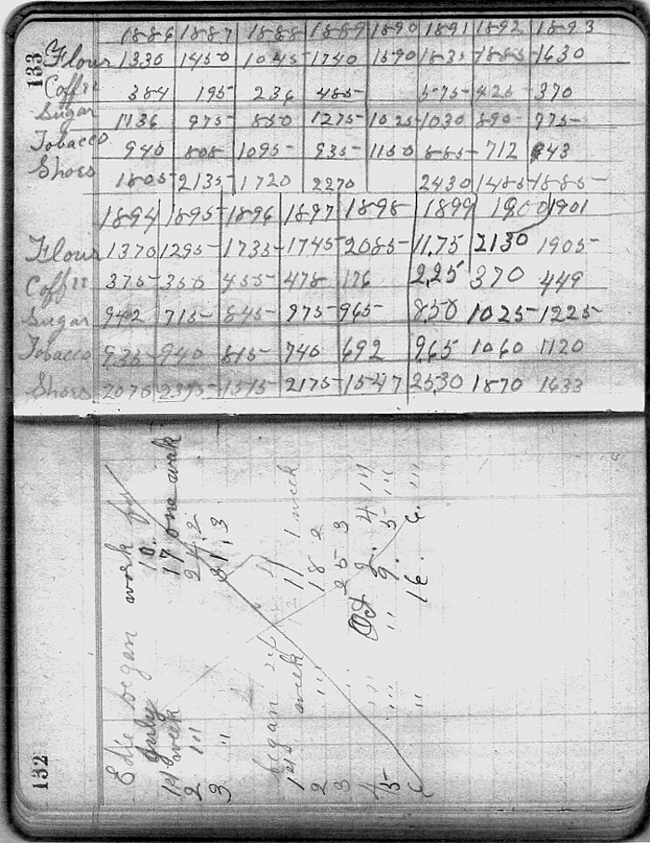 133
1886 1887 1888 1889 1890 1891 1892 1893
Flour 1330 1450 1045 1740 1590 1835 1885 1630
Coffee 384 195 236 485 575 425 370
Sugar 1136 975 850 1275 1025 1030 890 975
Tobacco 940 808 1095 935 1150 885 712 843
Shoes 1805 2135 1720 2270 2430 1485 1885
1894 1895 1896 1897 1898 1899 1900 1901
Flour 1370 1295 1735 1745 2085 11.75 2130 1905
Coffee 375 350 455 475 176 2.25 370 449
Sugar 942 715 845 975 965 850 1025 1225
Tobacco 935 940 815 740 692 965 1060 1120
Shoes 2070 2395 1515 2175 1547 2530 1870 1633
132
Edie began work for
July 10.
1st week 17 one week
2 "" 24.2
3 " 31.3
began
1st week 11 1 week
2 "" 18 2
3 25 3
4 "" Oct 2. 4 ""
5 "" " 9. 5 ""
6 " 16. 6. ""